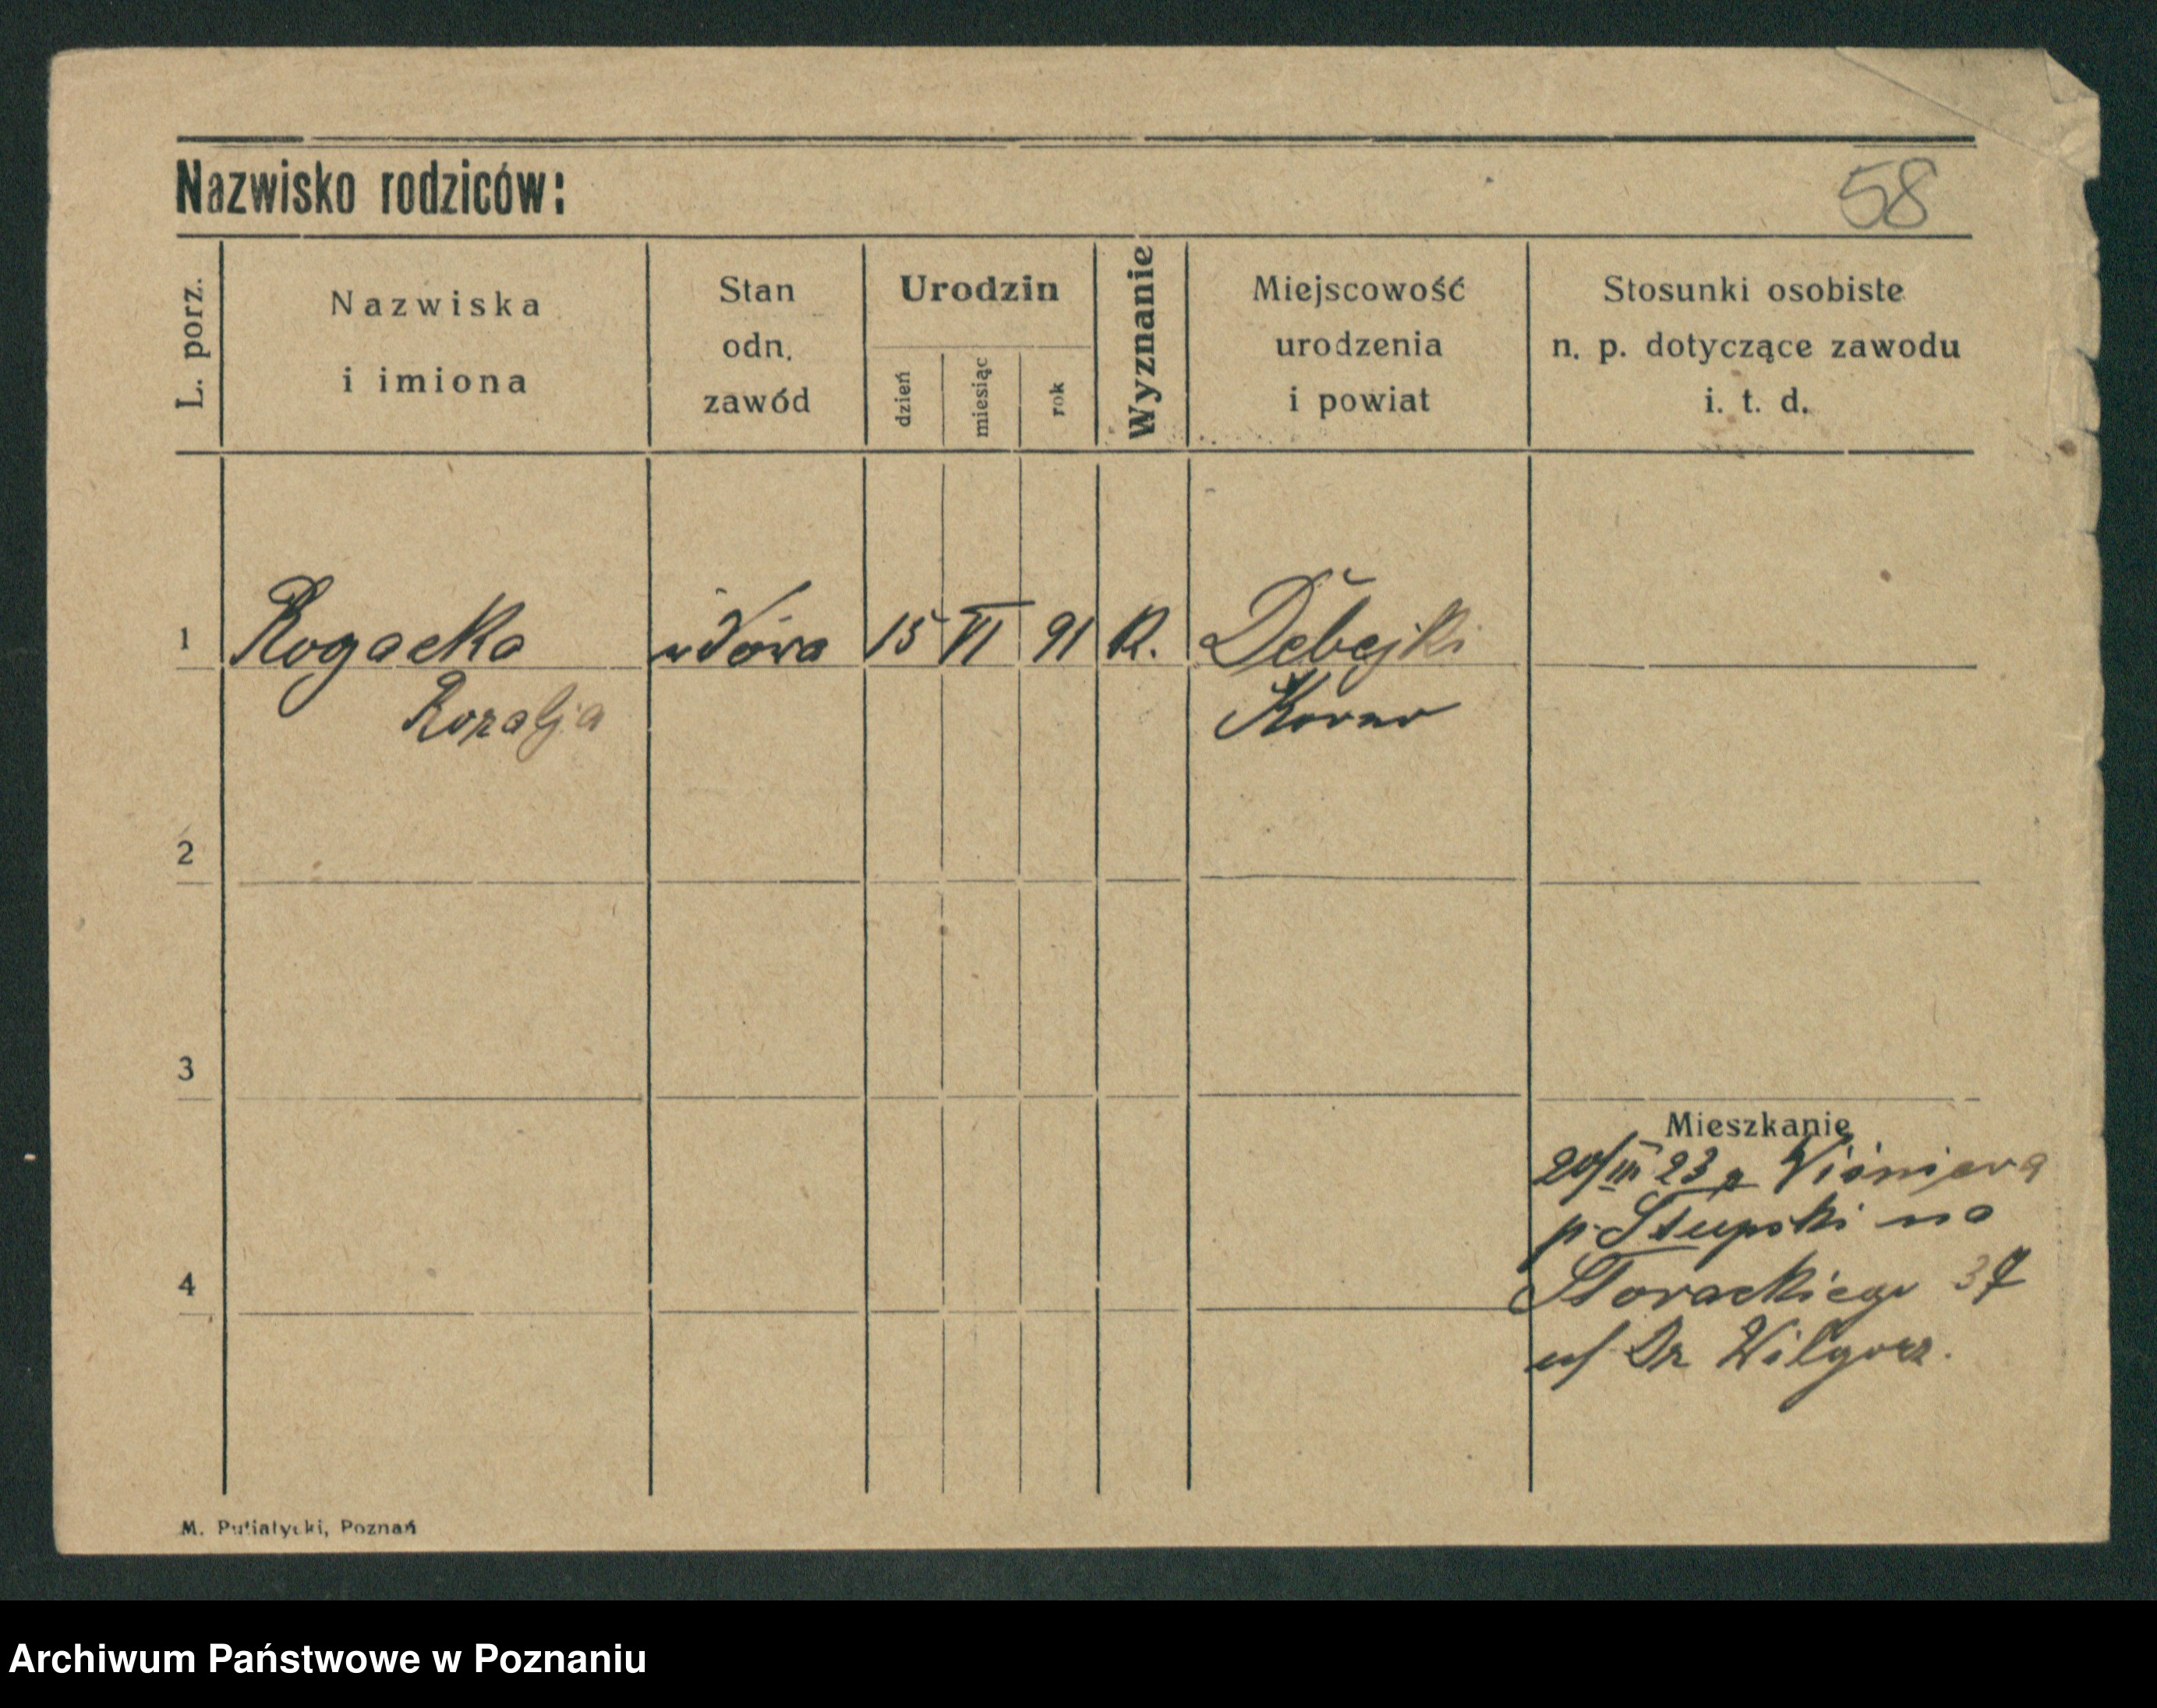 Nazwisko rodziców:
58
L. porz.
Nazwiska
i imiona
Stan
odn.
zawód
Urodzin
dzień
miesiąc
rok
Wyznanie
Miejscowość
urodzenia
i powiat
Stosunki osobiste
n. p. dotyczące zawodu
i. t. d.
1 Rogacka wdowa 15 VI 91 R.
Rozalja
2
3
Mieszkanie
20/III 23 z
p. Słupski na
4
37
u/ Dr
M. Putiatycki, Poznań
Archiwum Państwowe w Poznaniu